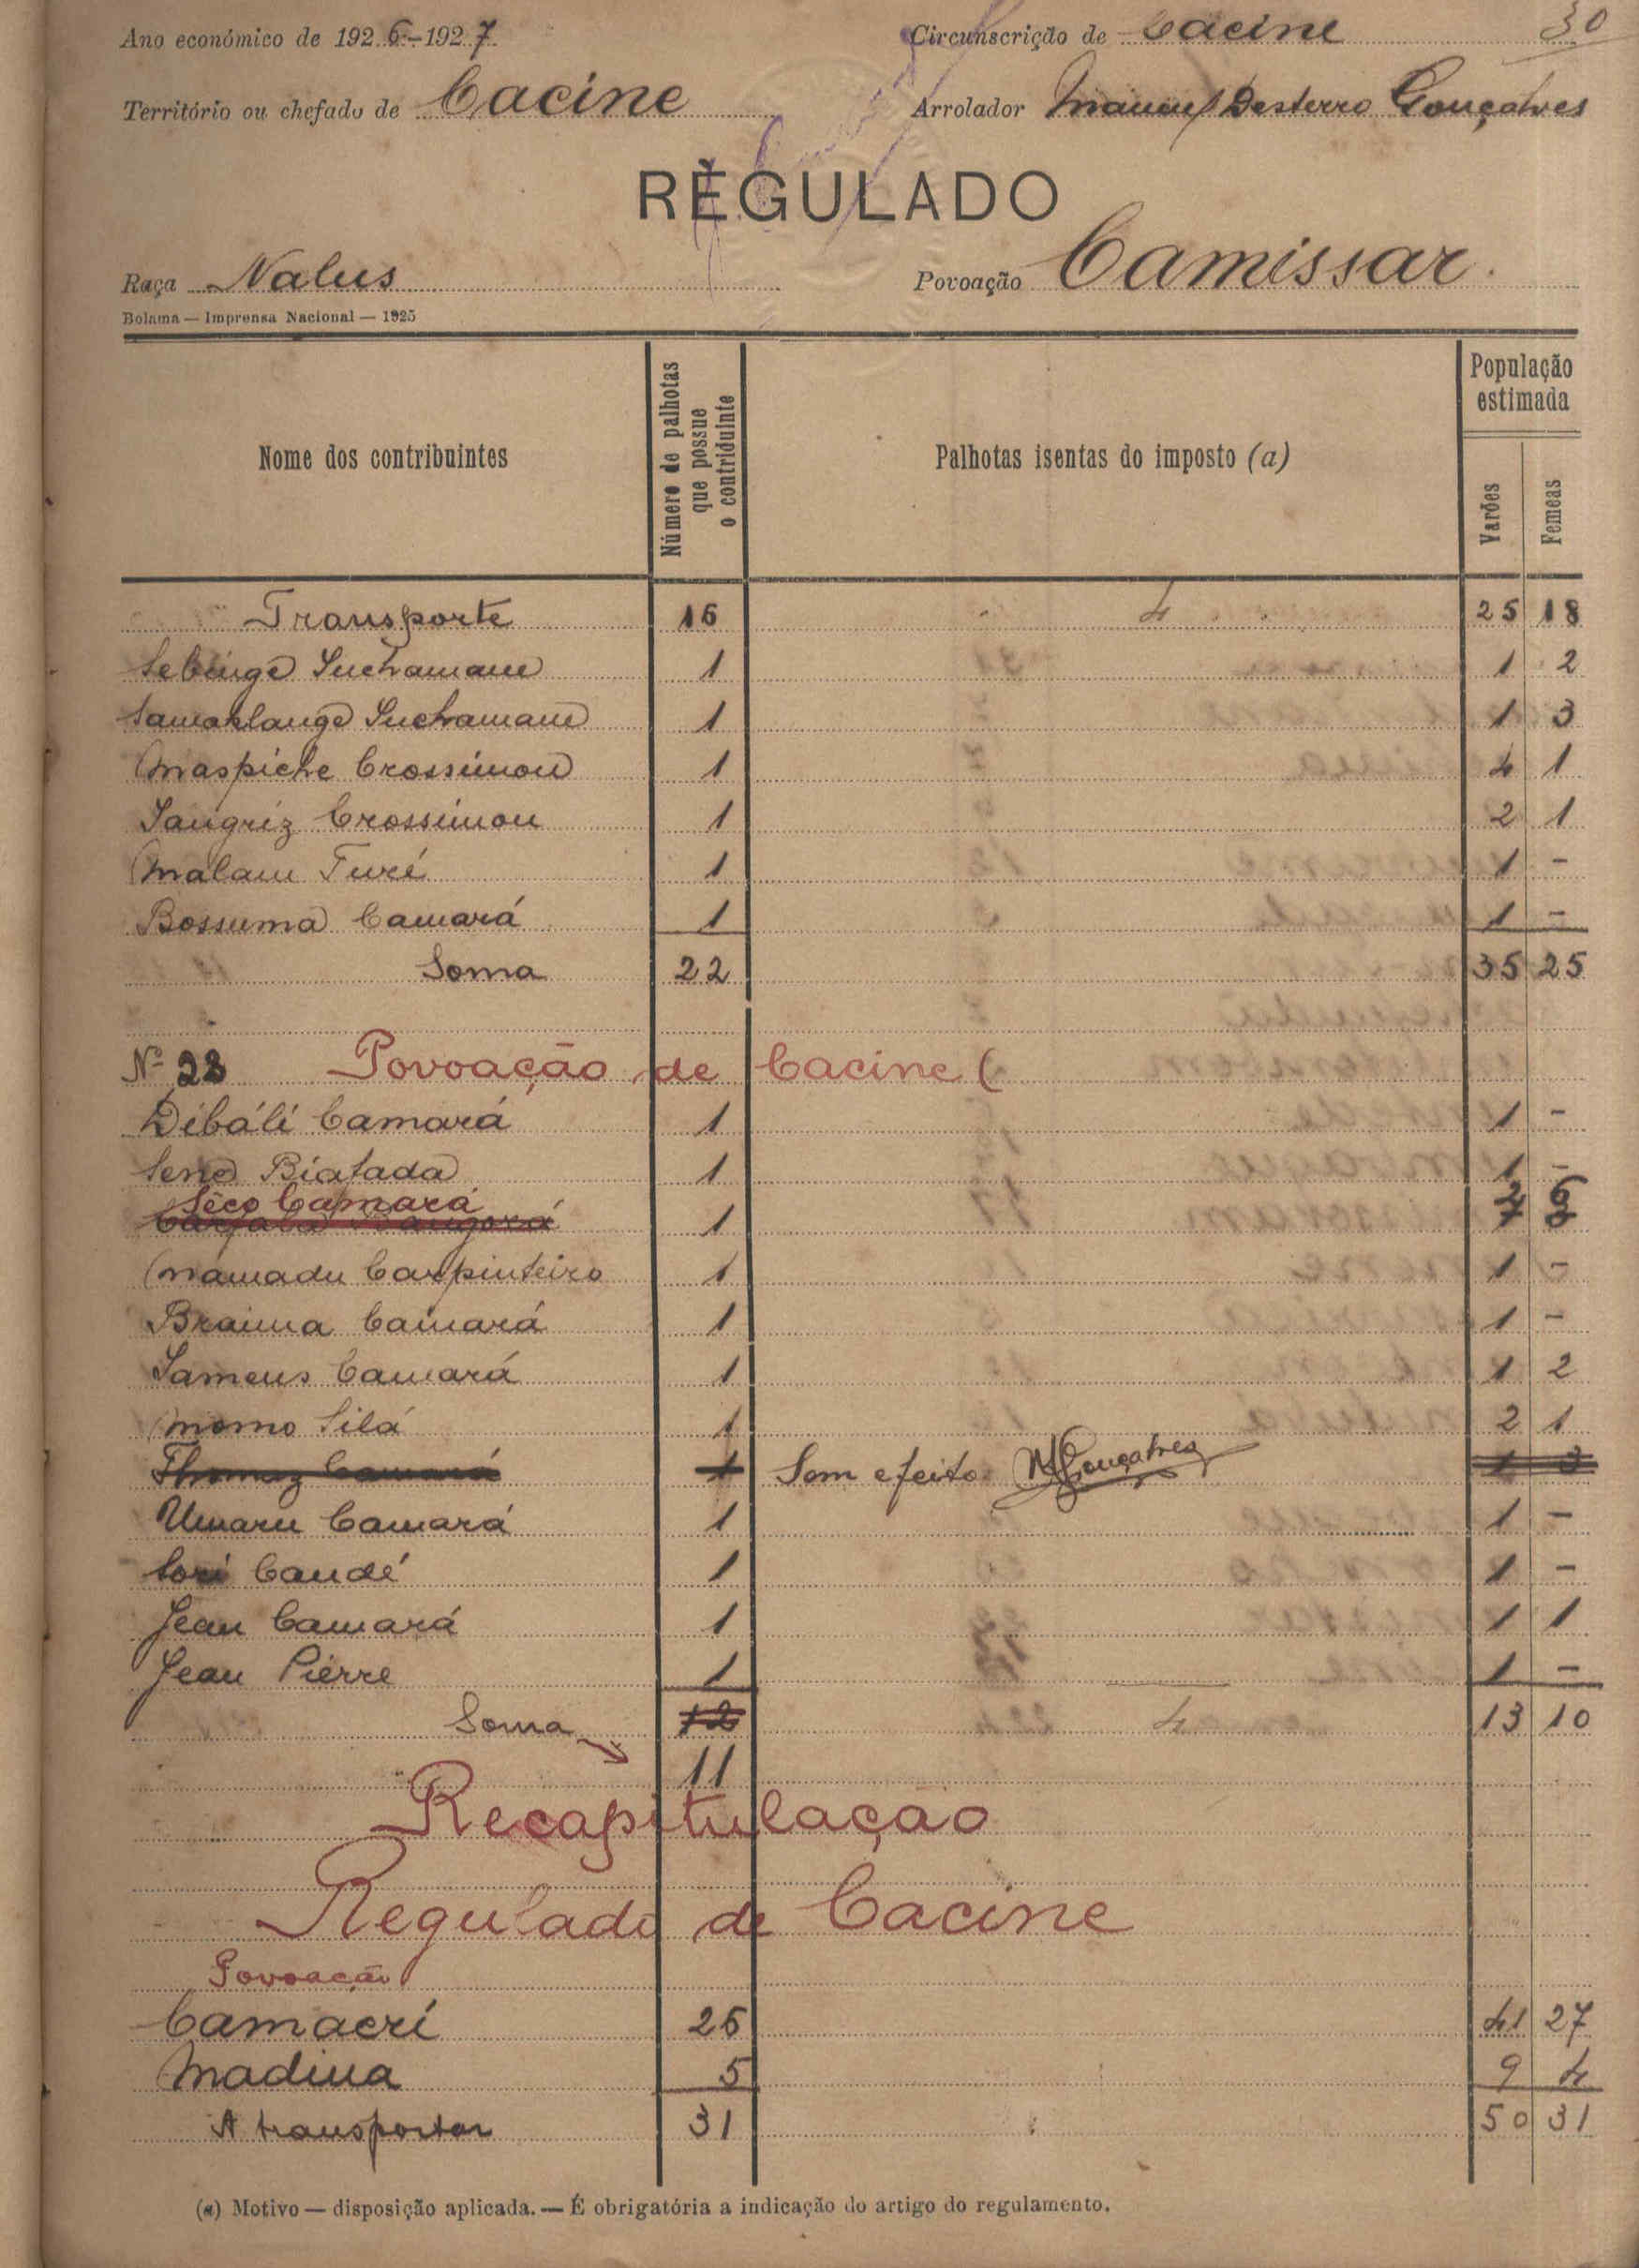 Ano económico de 1926-1927 Circunscrição de Cacine 30
Território ou chefado de Cacine Arrolador Manuel Desterro Gonçalves
REGULADO
Raça Nalus Povoação Camissar.
Bolama — Imprensa Nacional — 1925
Nome dos contribuintes
Número de palhotas que possue o contriduinte
Palhotas isentas do imposto (a)
População estimada
Varões Femeas
Transporte 16 4 25 18
Suchamam 1 1 2
Suchamam 1 1 3
Maspiche Crossimon 1 4 1
Sangriz Crossimon 1 2 1
Malam Turé 1 1 -
Bossuma Camará 1 1 -
Soma 22 35 25
Nº 23 Povoação de Cacine (
Dibáli Camará 1 1 -
Sene Biafada 1 1 -
Sêco Camará
1
Mamadu Carpinteiro 1 1 -
Braima Camará 1 1 -
Sameus Camará 1 1 2
Momo Silá 1 2 1
Thomaz Camará 1 Sem efeito MGonçalves 1 3
Umaru Camará 1 1 -
Sori Candé 1 1 -
Jean Camará 1 1 1
Jean Pierre 1 1 -
Soma 12 4 13 10
11
Recapitulação
Regulado de Cacine
Povoação
Camacri 26 41 27
Madina 5 9 4
A transportar 31 50 31
(a) Motivo — disposição aplicada. — É obrigatória a indicação do artigo do regulamento.